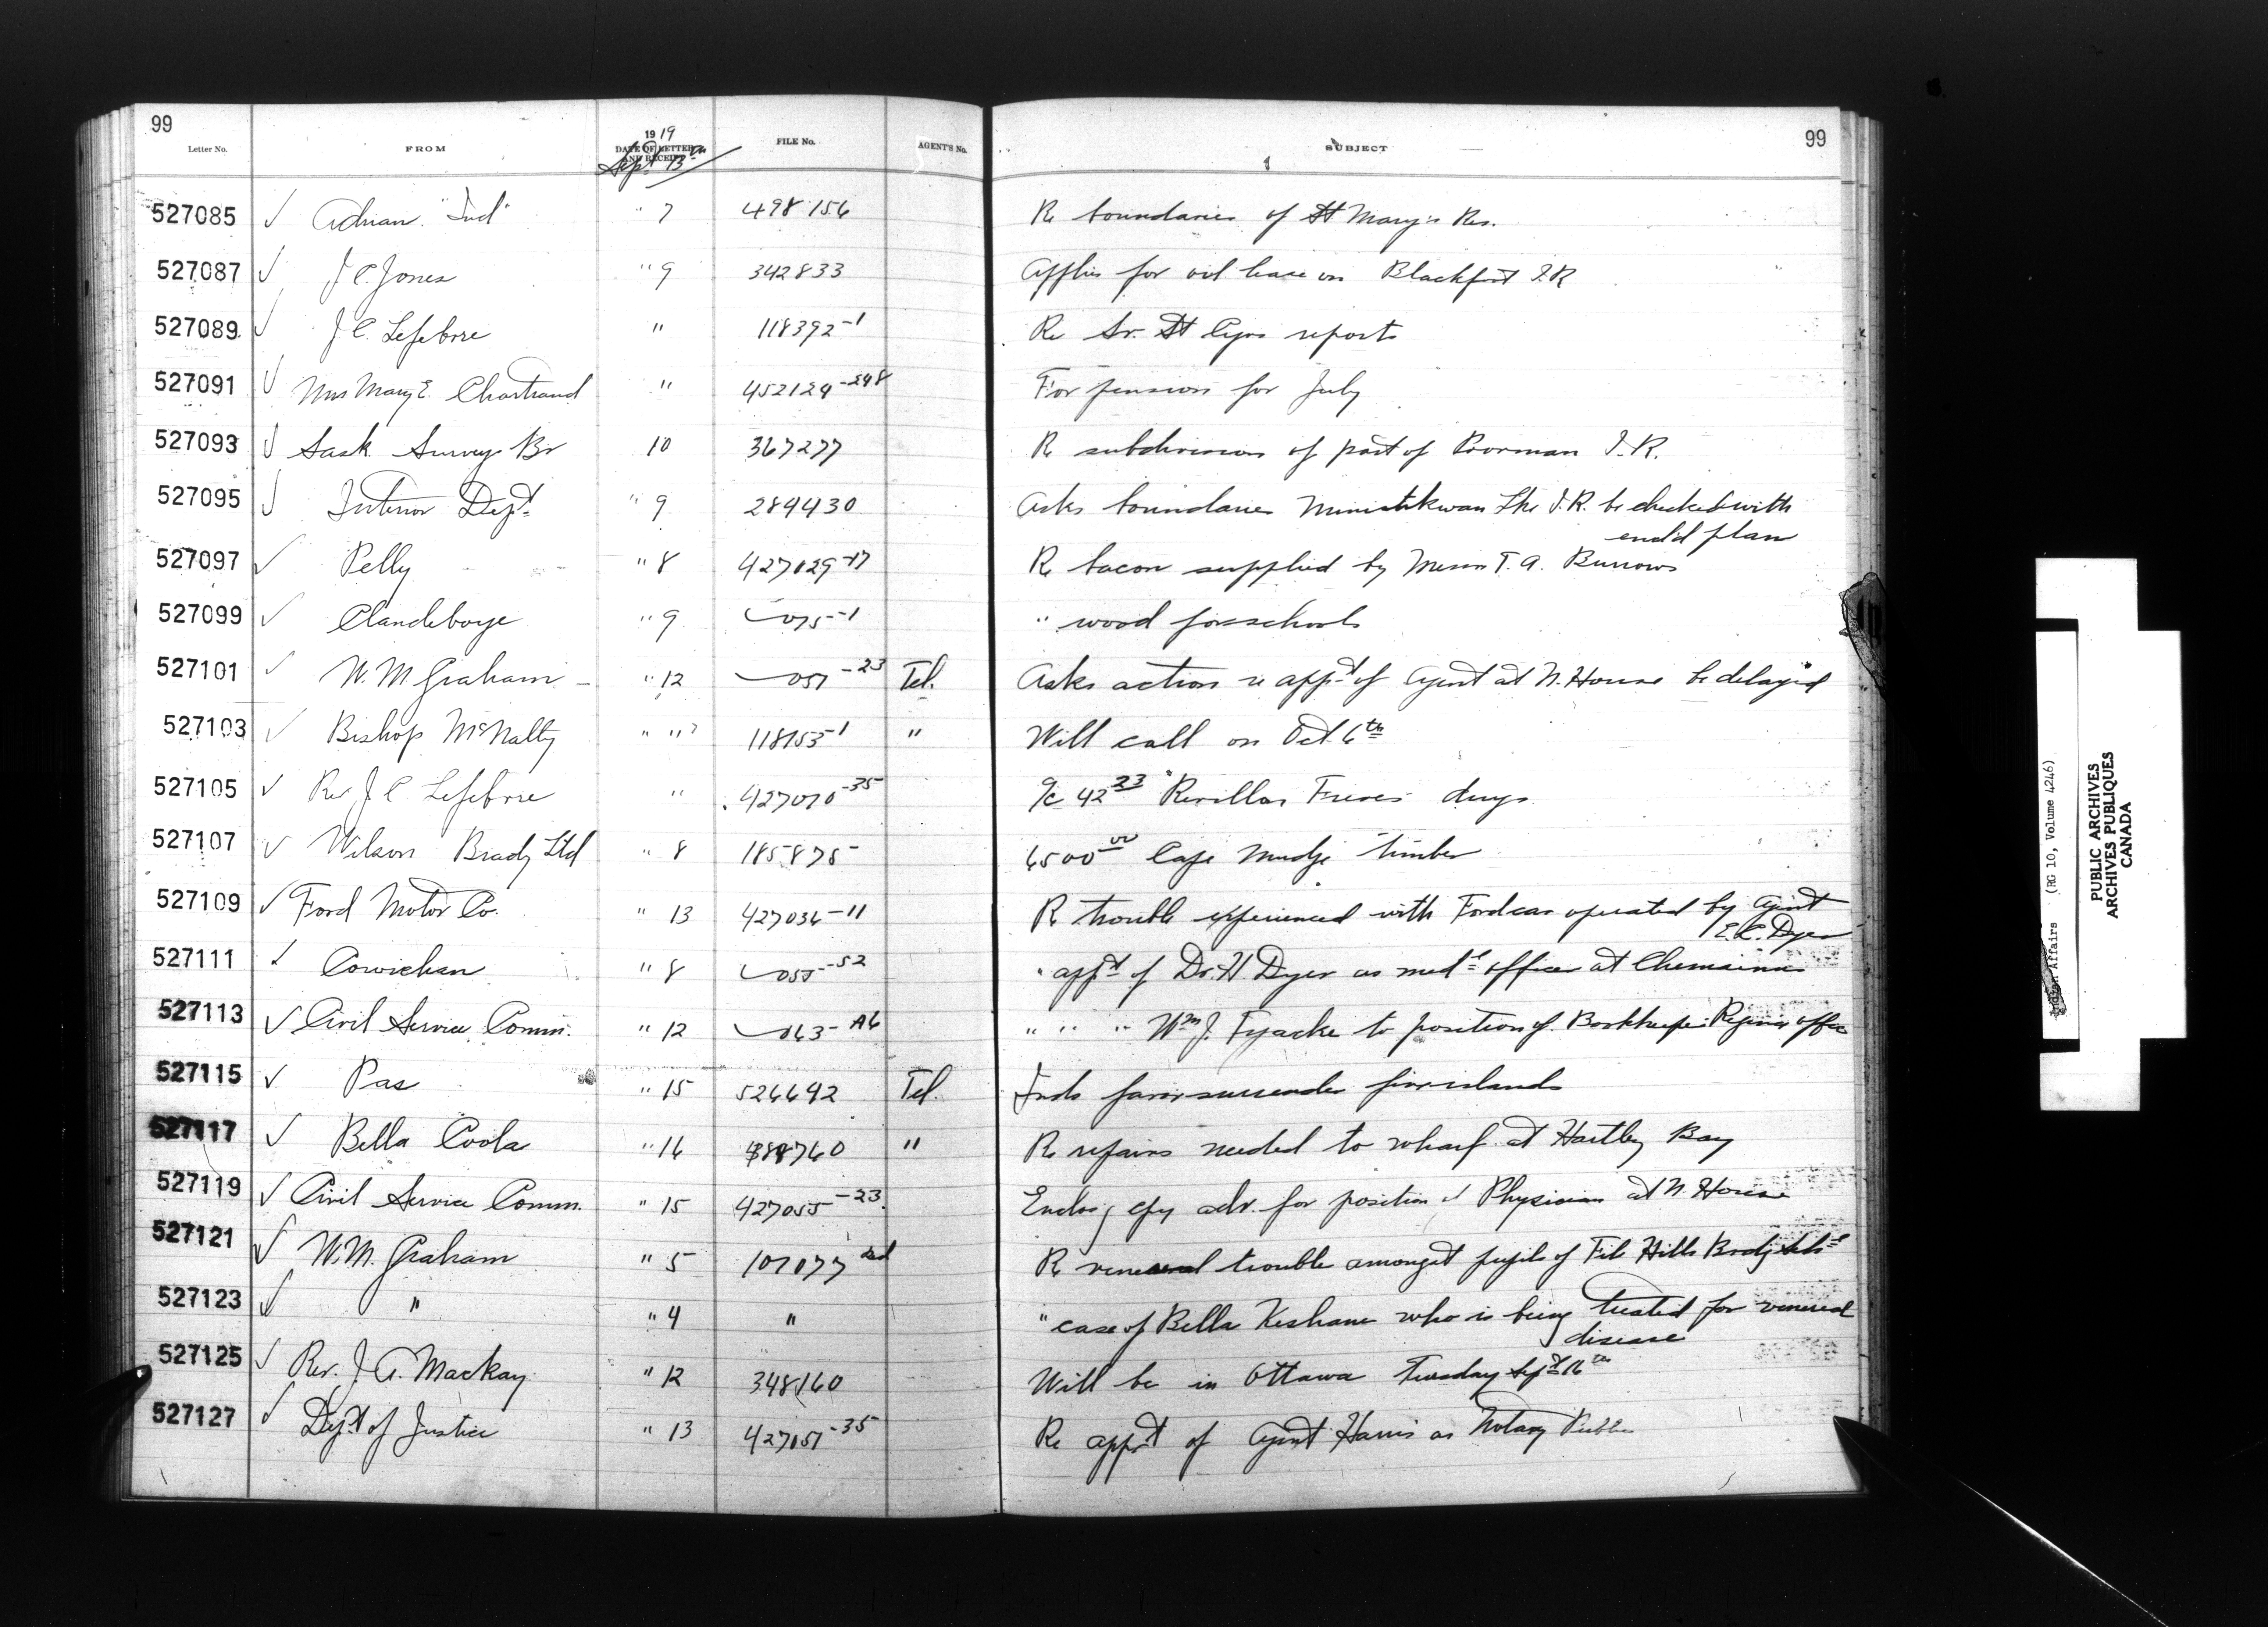 99
99
Letter No. FROM 1919 DATE OF LETTER AND RECEIPT FILE No. AGENT'S No. SUBJECT
Sept 13th
527085 ✓ Adrian "Ind" " 7 498156 Re boundaries of St Mary's Res.
527087 ✓ J C. Jones " 9 342833 Applies for oil lease on Blackfoot I.R
527089 ✓ J C. Lefebvre " 118392-1 Re Sr. St Cyrs reports
527091 ✓ Mrs Mary E. Chartrand " 452124-248 For pension for July
527093 ✓ Sask Surveys Br 10 367277 Re subdivision of part of Poorman I.R.
527095 ✓ Interior Dept. " 9 284430 Asks boundaries Ministikwan Lke I.R. be checked with
encl'd plan
527097 ✓ Pelly " 8 427029-17 Re bacon supplied by Messrs T. A. Burrows
527099 ✓ Clandeboye " 9 075-1 " wood for schools
527101 ✓ W. M. Graham " 12 051-23 Tel. Asks action re appt of Agent at N. House be delayed
527103 ✓ Bishop McNally " " ? 118153-1 " Will call on Oct. 6th
527105 ✓ Rev J. C. Lefebvre " 427070-35 a/c 42 33 "Revillon Freres" drugs
527107 ✓ Wilson Brady Ltd " 8 185875 6500 00 Cape Mudge timber
527109 ✓ Ford Motor Co. " 13 427036-11 Re trouble experienced with Ford car operated by Agent
E. C. Dyer
527111 ✓ Cowichan " 8 055-52 " appt of Dr. H. Dyer as medl officer at Chemainus
527113 ✓ Civil Service Comm. " 12 063-A6 " " " Wm J. Tyacke to position of Bookkeeper Regina office
527115 ✓ Pas " 15 526692 Tel. Inds favor surrender five islands
527117 ✓ Bella Coola " 16 388760 " Re repairs needed to wharf at Hartley Bay
527119 ✓ Civil Service Comm. " 15 427055-23 Enclosg cpy adv. for position of Physician at N. House
527121 ✓ W. M. Graham " 5 107077 2nd Re venereal trouble amongst pupils of File Hills Brdg Schl
527123 ✓ " " 4 " " case of Bella Keshane who is being treated for venereal
disease
527125 ✓ Rev. J. A. Mackay " 12 348160 Will be in Ottawa Tuesday Sept 16th
527127 ✓ Dept of Justice " 13 427051-35 Re appt of Agent Harris as Notary Public
Indian Affairs (RG 10, Volume 4246)
PUBLIC ARCHIVES
ARCHIVES PUBLIQUES
CANADA